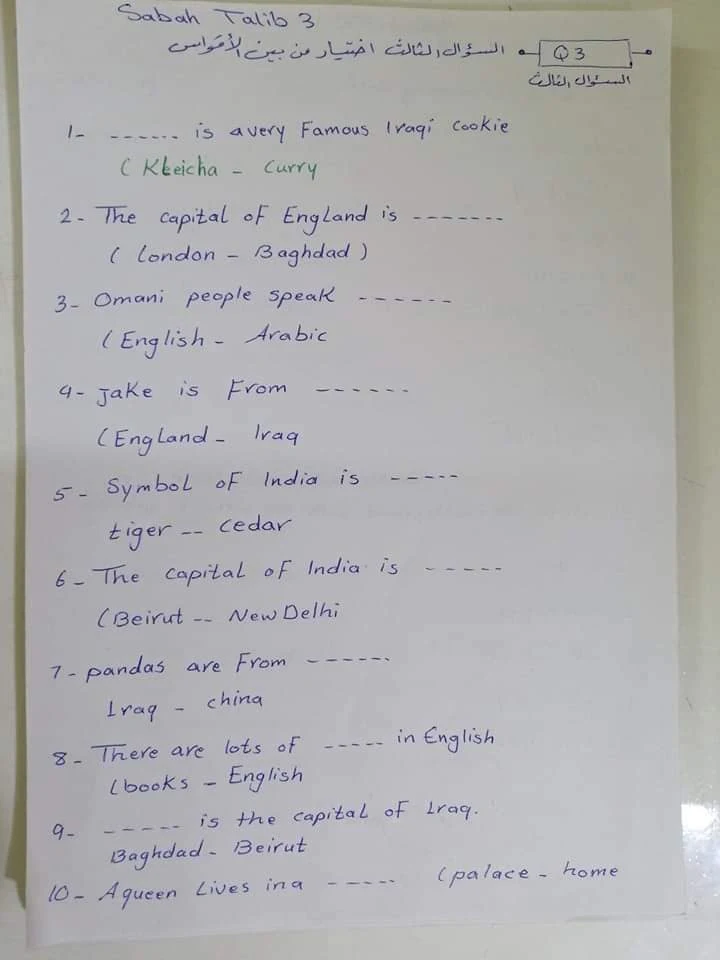 Sabah Talib 3
السؤال الثالث اختيار من بين الأقواس
Q3
السؤال الثالث
1- ------ is a very Famous Iraqi Cookie
( Kleicha - Curry
2- The capital of England is -------
( London - Baghdad )
3- Omani people speak ------
( English - Arabic
4- Jake is From ------
( England - Iraq
5- Symbol of India is -----
tiger -- cedar
6- The capital of India is -----
( Beirut -- New Delhi
7- pandas are From ------
Iraq - china
8- There are lots of ----- in English
( books - English
9- ----- is the capital of Iraq.
Baghdad - Beirut
10- A queen Lives in a ----- ( palace - home